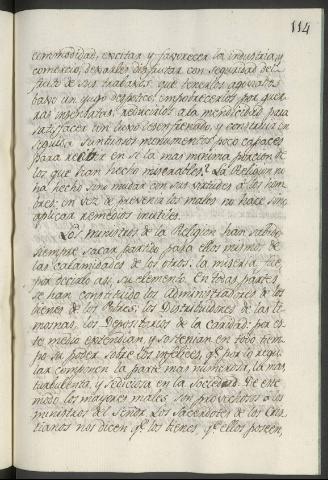 114
commodidad, excitar y favorecer la industria y
comercio, dexarles disfrutar con seguridad del
fruto de sus trabaxos, que tenerlos agoviados
baxo un yugo despotico, empobrecerlos por guer-
ras insensatas, reducirlos a la mendicidad para
satisfacer un luxo desenfrenado, y construir en
seguida suntuosos monumentos poco capaces
para recibir en si la mas minima porcion de
los que han hecho miserables? La Religion no
ha hecho sino mudar con sus virtudes a los hom-
bres: en vez de prevenir los males no hace sino
aplicar remedios inutiles.
Los ministros de la Religion han sabido
siempre sacar partido para ellos mismos de
las calamidades de los otros: la miseria fue
por decirlo asi, su elemento. En todas partes
se han constituido los Administradores de los
bienes de los Pobres; los Distribuidores de las li-
mosnas, los Depositarios de la caridad: por es-
te medio extendian y sostenian en todo tiem-
po su poder sobre los infelices, qe. por lo regu-
lar componen la parte mas numerosa, la mas
turbulenta, y sediciosa en la Sociedad. De este
modo los mayores males son provechosos a los
ministros del Señor. Los Sacerdotes de los Cris-
tianos nos dicen qe. los bienes, qe. ellos poseen,